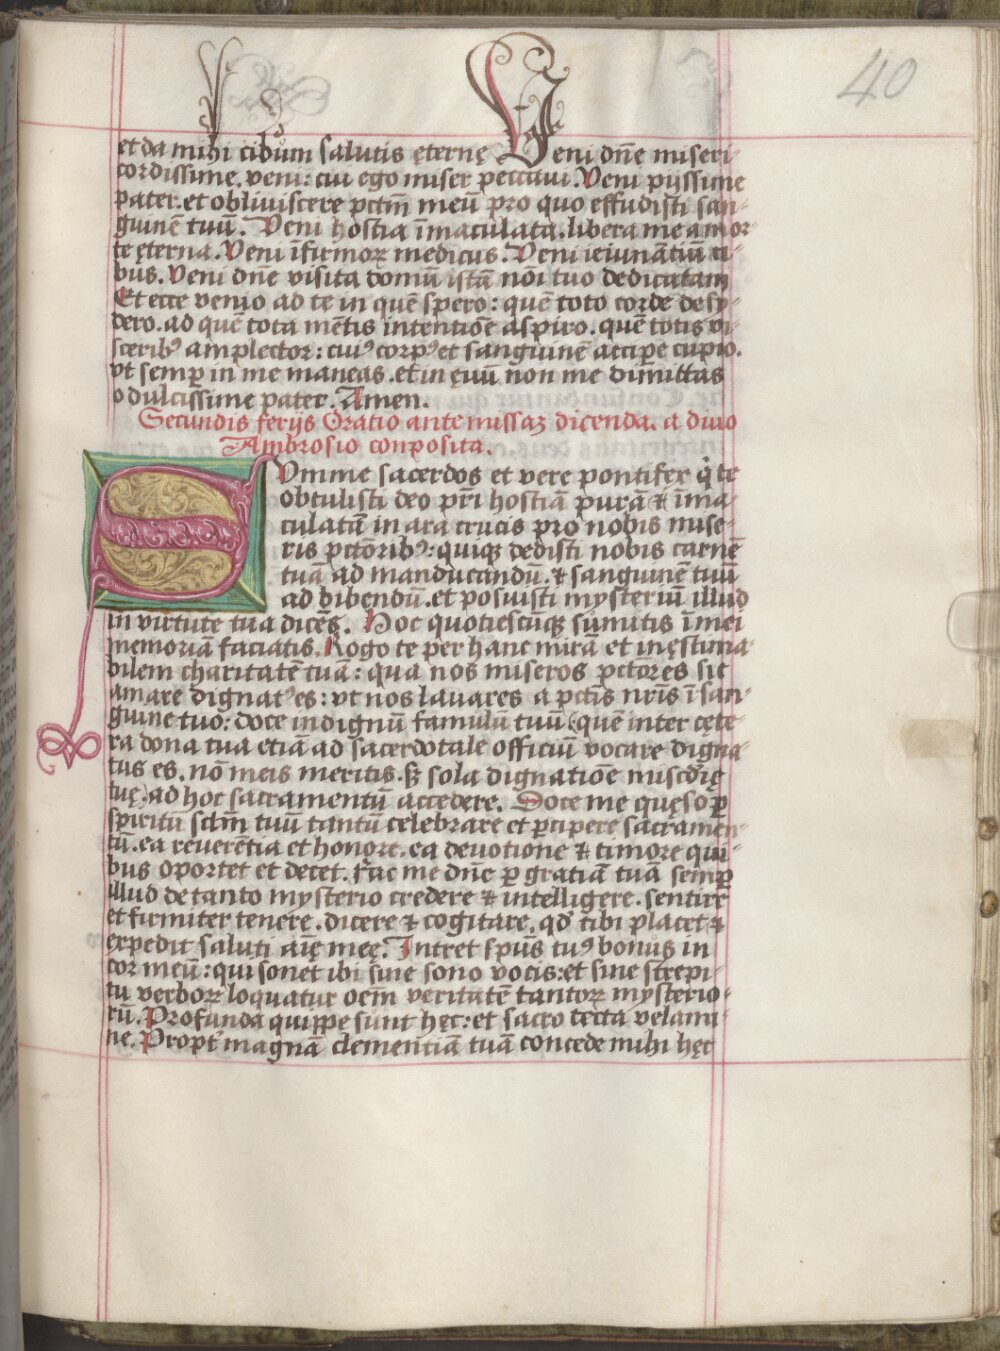 40
et da mihi cibum salutis ęternę Veni dn̄e miseri-
cordissime. veni: cui ego miser peccavi. Veni pijssime
pater. et obliviscere pctm̄ meū pro quo effudisti san-
guinē tuū. Veni hostia īmaculata. libera me a mor-
te ęterna. Veni īfirmoꝝ medicus. Veni ieiunātiū ci-
bus. Veni dn̄e visita domū istā nōi tuo dedicatam
Et ecce venio ad te in quē spero: quē toto corde desy-
dero. ad quē tota mētis intentiōe aspiro. quē totis vi-
sceribꝰ amplector: cuiꝰ corpꝰ et sanguinē accipe cupio.
vt semꝑ in me maneas. et in ęvū non me dimittas
o dulcissime pater. Amen.
Secundis ferijs Oratio ante missaꝫ dicenda. a divo
Ambrosio conposita.
Summe sacerdos et vere pontifex q̇ te
obtulisti deo pr̄i hostiā purā & īma-
culatā in ara crucis pro nobis mise-
ris pctōribꝰ: quiqꝫ dedisti nobis carnē
tuā ad manducandū. & sanguinē tuū
ad bibendū. et posuisti mysteriū illud
in virtute tua dicēs. Hoc quotiescūqꝫ sūmitis ī mei
memoriā faciatis. Rogo te per hanc mirā et inęstima-
bilem charitatē tuā: qua nos miseros pctores sic
amare dignatꝰ es: vt nos lavares a pctīs nr̄is ī san-
guine tuo: doce indignū famulū tuū (quē inter cęte-
ra dona tua etiā ad sacerdotale officiū vocare digna-
tus es. nō meis meritis. sꝫ sola dignatiōe miscdīę
tuę) ad hoc sacramentū accedere. Doce me quęso ꝑ
spiritū sctm̄ tuū tantū celebrare et ꝑcipere sacramen-
tū. ea reverētia et honore. ea devotione & timore qui-
bus oportet et decet. Fac me dn̄e ꝑ gratiā tuā semꝑ
illud de tanto mysterio credere & intelligere. sentire
et firmiter tenere. dicere & cogitare. qd̓ tibi placet &
expedit saluti aīę meę. Intret spūs tuꝰ bonus in
cor meū: qui sonet ibi sine sono vocis: et sine strepi-
tu verboꝝ loquatur oēm veritatē tantoꝝ mysterio-
rū. Profunda quippe sunt hęc: et sacro tecta velami-
ne. Propt̓ magnā clementiā tuā concede mihi hęc